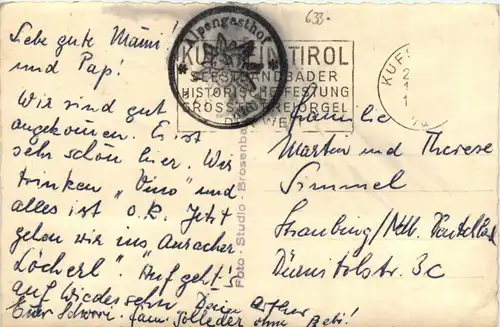 633.
Liebe gute Mami!
und Pap!
Wir sind gut
angekommen. Es ist
sehr schön hier. Wir
trinken „Vino" und
alles ist o.K. Jetzt
gehen wir ins „Auracher
Löcherl". „Auf geht's!"
auf Wiedersehn Dein Arthur
Euer Schwori. fam. Solleder ohne Bebi!
Alpengasthof
KUFSTEIN TIROL
SEESTRANDBÄDER
HISTORISCHE FESTUNG
GRÖSSTE FREIORGEL
DER WELT
KUFS
Foto - Studio - Brosenba
Familie
Martin und Therese
Simmel
Straubing/Ndb.
Dürnitzlstr. 3c